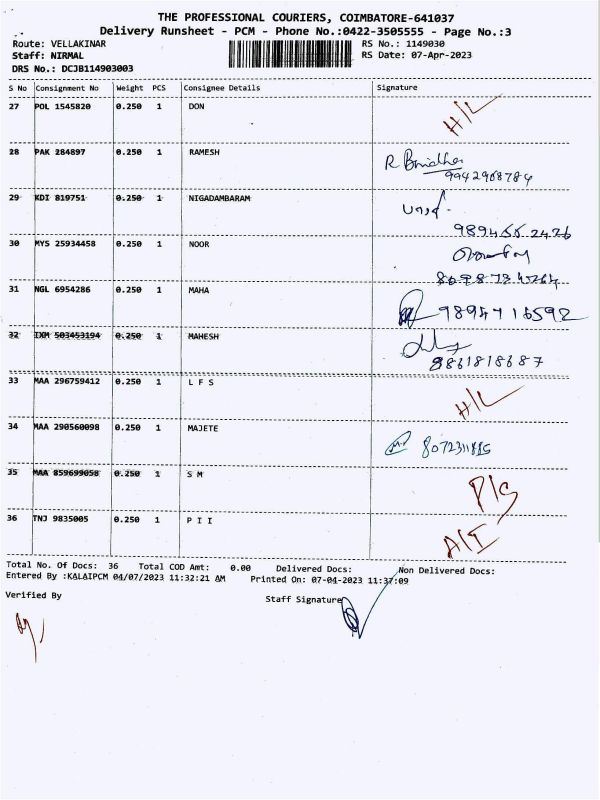 THE PROFESSIONAL COURIERS, COIMBATORE-641037
Delivery Runsheet - PCM - Phone No.:0422-3505555 - Page No.:3
Route: VELLAKINAR RS No.: 1149030
Staff: NIRMAL RS Date: 07-Apr-2023
DRS No.: DCJB114903003
S No Consignment No Weight PCS Consignee Details Signature
27 POL 1545820 0.250 1 DON H/L
28 PAK 284897 0.250 1 RAMESH R
9942968784
29 KDI 819751 0.250 1 NIGADAMBARAM
30 MYS 25934458 0.250 1 NOOR
31 NGL 6954286 0.250 1 MAHA 9894716592
32 IXM 503453194 0.250 1 MAHESH
9861818687
33 MAA 296759412 0.250 1 L F S H/L
34 MAA 290560098 0.250 1 MAJETE
35 MAA 859699058 0.250 1 S M P/S
36 TNJ 9835005 0.250 1 P I I A/I
Total No. Of Docs: 36 Total COD Amt: 0.00 Delivered Docs: Non Delivered Docs:
Entered By :KALAIPCM 04/07/2023 11:32:21 AM Printed On: 07-04-2023 11:37:09
Verified By Staff Signature